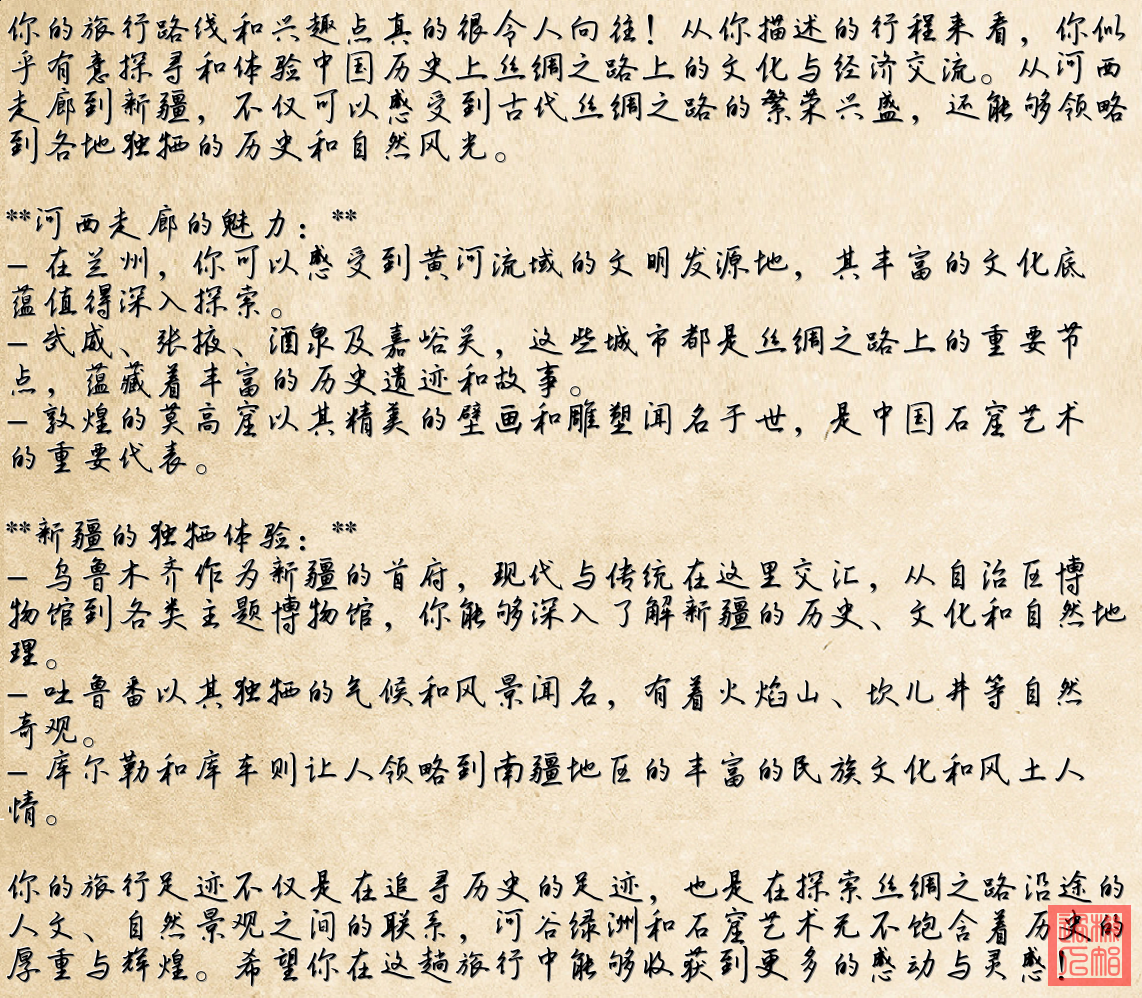 你的旅行路线和兴趣点真的很令人向往！从你描述的行程来看，你似
乎有意探寻和体验中国历史上丝绸之路上的文化与经济交流。从河西
走廊到新疆，不仅可以感受到古代丝绸之路的繁荣兴盛，还能够领略
到各地独特的历史和自然风光。
**河西走廊的魅力：**
- 在兰州，你可以感受到黄河流域的文明发源地，其丰富的文化底
蕴值得深入探索。
- 武威、张掖、酒泉及嘉峪关，这些城市都是丝绸之路上的重要节
点，蕴藏着丰富的历史遗迹和故事。
- 敦煌的莫高窟以其精美的壁画和雕塑闻名于世，是中国石窟艺术
的重要代表。
**新疆的独特体验：**
- 乌鲁木齐作为新疆的首府，现代与传统在这里交汇，从自治区博
物馆到各类主题博物馆，你能够深入了解新疆的历史、文化和自然地
理。
- 吐鲁番以其独特的气候和风景闻名，有着火焰山、坎儿井等自然
奇观。
- 库尔勒和库车则让人领略到南疆地区的丰富的民族文化和风土人
情。
你的旅行足迹不仅是在追寻历史的足迹，也是在探索丝绸之路沿途的
人文、自然景观之间的联系，河谷绿洲和石窟艺术无不饱含着历史的
厚重与辉煌。希望你在这趟旅行中能够收获到更多的感动与灵感！